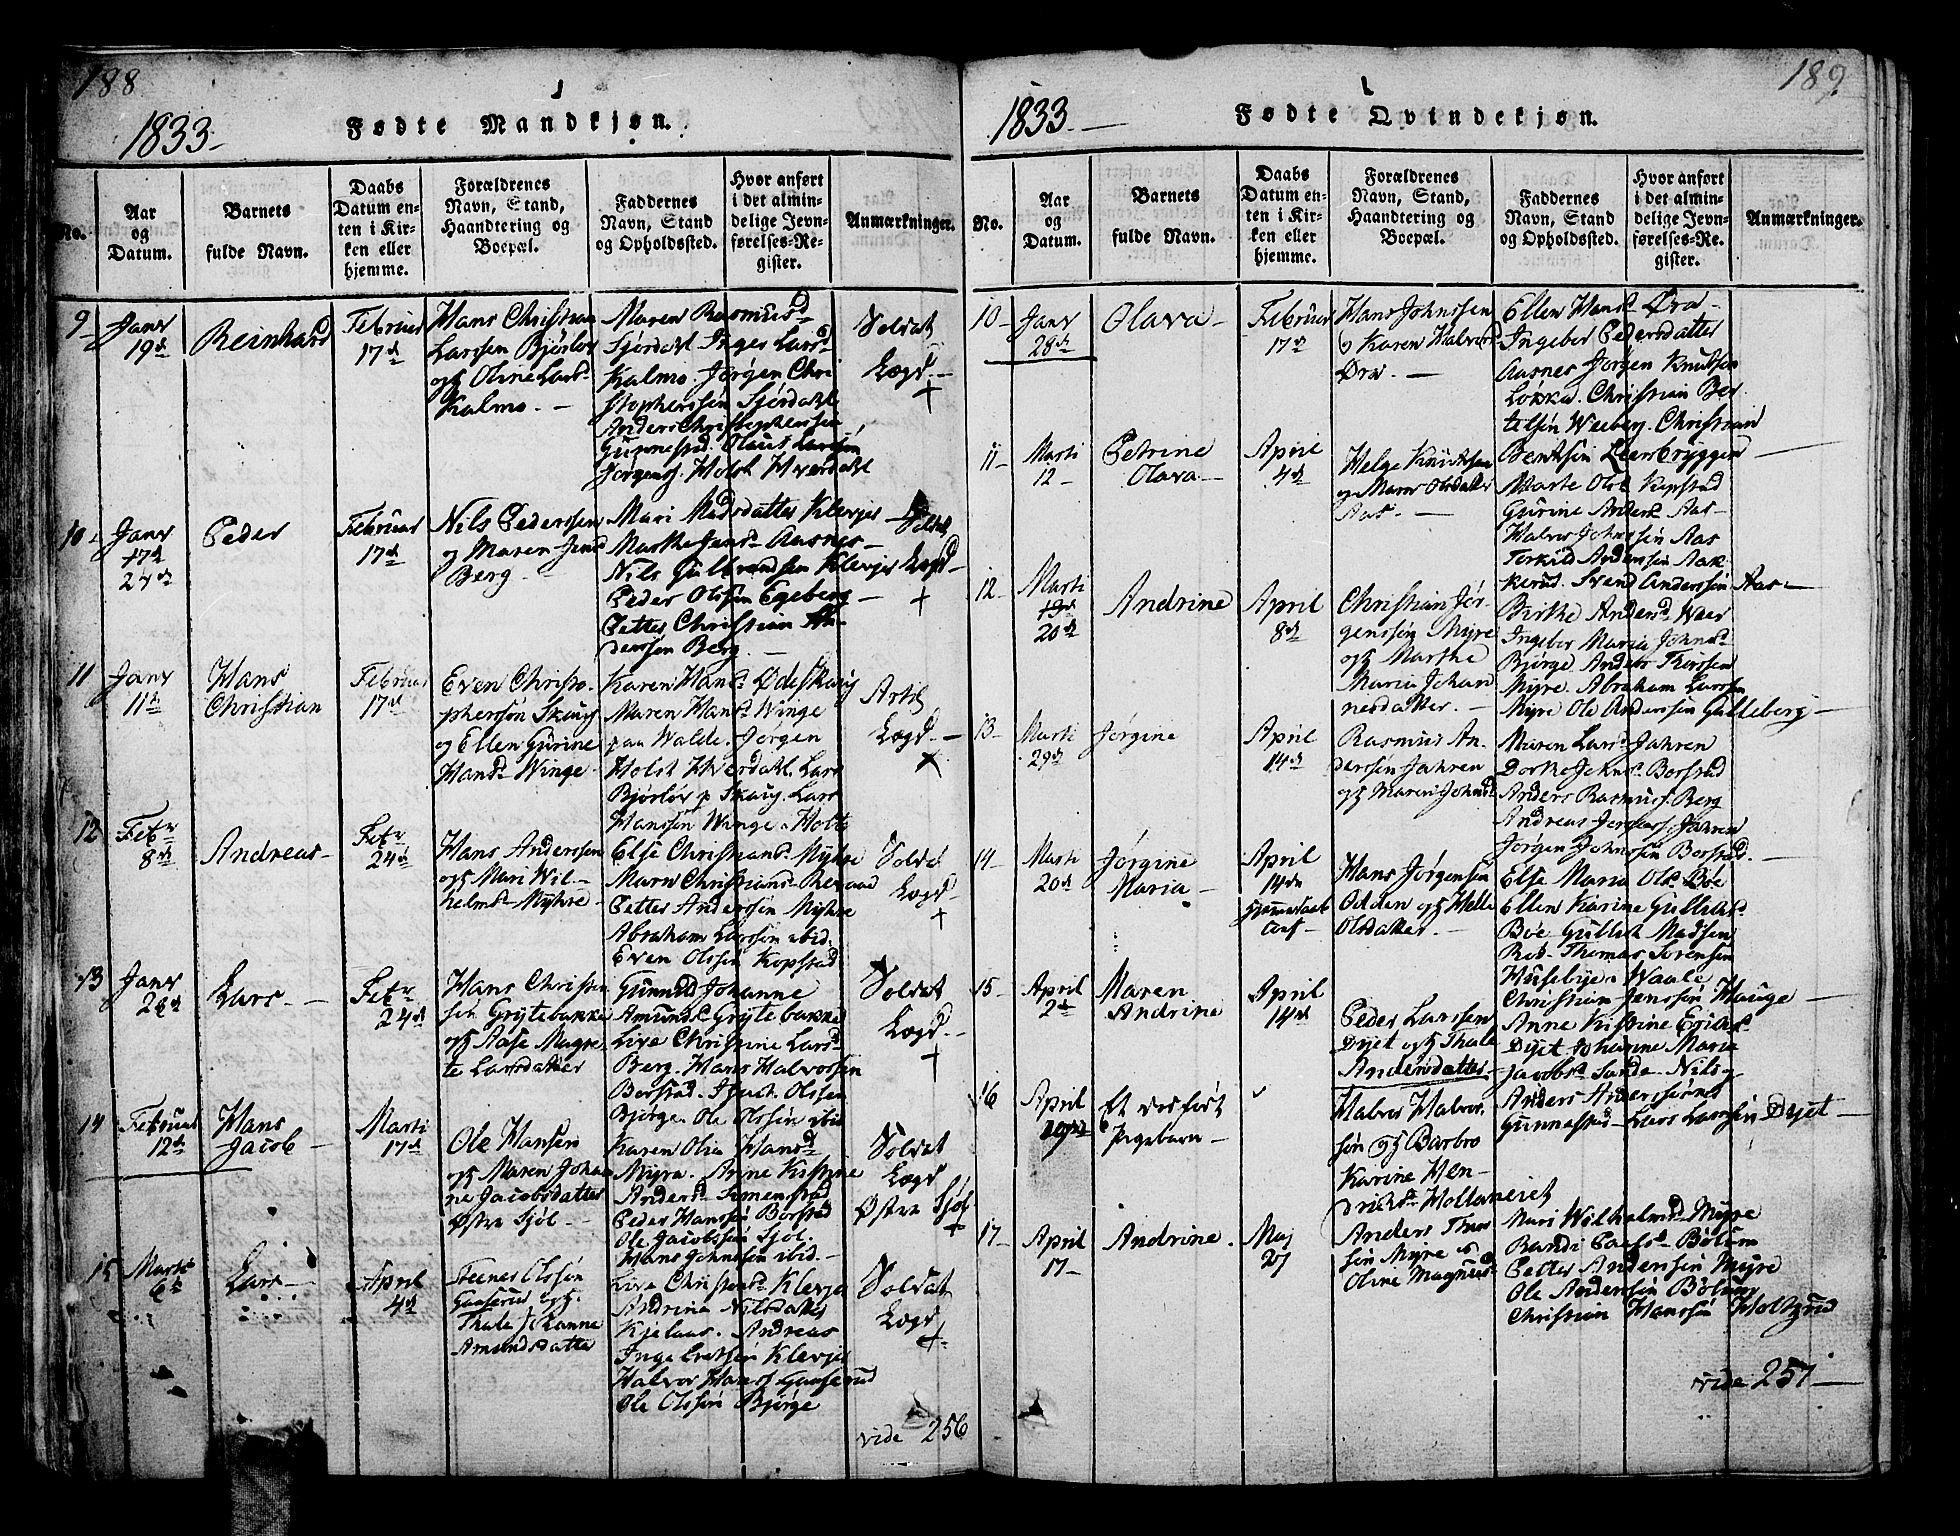 188
1833.
Fødte Mandkjøn.
No.
Aar og Datum.
Barnets fulde Navn.
Daabs Datum enten i Kirken eller hjemme.
Forældrenes Navn, Stand, Haandtering og Boepæl.
Faddernes Navn, Stand og Opholdssted.
Hvor anført i det almindelige Jevnførelses-Register.
Anmærkninger.
9
Janr
19de
Reinhard
Februar
17de
Hans Christian
Larssen Bjørløv
og Oline Lars
Kalmo.
Maren Rasmusd
Sjørdahl Inger Larsd
Kalmo. Jørgen Chri
stopherssen Sjørdahl
Anders Christophersen
Gunnestad. Olaus Larssen
Jorgens. Holst Hverdahl
Soldat
Lægd
10
Janr
17de
27de
Peder
Februar
17de
Nils Pederssen
og Maren Jens
Berg.
Mari Madsdatter Klevjer
Marthe Jensd. Aasnes
Nils Gulbrandsen Klevjer
Peder Olssøn Egeberg
Petter Christian An-
derssen Berg.
Soldat
Lægd
11
Janr
11te
Hans
Christian
Februar
17de
Even Christo-
phersøn Skaug
og Ellen Gurine
Hansd. Winge
Karen Hansd. Ødeskaug
Maren Hansd. Winge
paa Walde. Jørgen
Holst Hverdahl. Lars
Bjørløv p Skaug. Lars
Hanssøn Winge i Holte
Artl
Lægd
12
Febr
8de
Andreas
Febr
24de
Hans Anderssen
og Mari Wil-
helmsd. Myhre
Else Christiansd. Myhre
Maren Christiansd. Revaad
Petter Anderssøn Myhre
Abraham Larssøn ibid.
Even Olssøn Kopstad
Soldat
Lægd
13
Janr
28de
Lars
Febr
24de
Hans Christen
sen Grytebakke
og Aase Magre
te Larsdatter
Gunnild Johanne
Amunds. Grytebakke
Live Christine Larsd
Berg. Hans Halvorsen
Borstad. Isach Olssen
Bjørge. Ole Olssøn ibid
Soldat
Lægd
14
Februar
12te
Hans
Jacob
Marti
17de
Ole Hansen
og Maren Johan
ne Jacobsdatter
Østre Sjøl
Karen Olia Hansd
Myra. Anne Kistine
Andersd. Semenstad
Peder Hanssøn Borstad
Ole Jacobssøn Sjøl.
Hans Johnssøn ibid
Soldat
Lægd
Østre Sjøl
15
Marti
6te
Lars
April
4de
Steenes Olssøn
Gaaserud og
Thale Johanne
Amundsdatter
Live Christensd. Klevjer
Andrine Nilsdatter
Kjelaas. Andreas
Ingebretsen Klevjer
Halvor Hans. Gaaserud
Ole Olssøn Bjørge
Soldat
Lægd
vide 256
189
1833.
Fødte Qvindekjøn.
No.
Aar og Datum.
Barnets fulde Navn.
Daabs Datum enten i Kirken eller hjemme.
Forældrenes Navn, Stand, Haandtering og Boepæl.
Faddernes Navn, Stand og Opholdsted.
Hvor anført i det almindelige Jevnførelses-Re. gister.
Anmærkninger.
10
Janr
28de
Olava
Februar
17de
Hans Johnssen
og Karen Halvorsd
Øra.
Ellen Hansd. Øra
Ingebor Pedersdatter
Aasnes Jørgen Knutsen
Løkka. Christian Ber
telsøn Weeberg. Christian
Bentsøn Leerbryggen
11
Marti
12
Petrine
Olava
April
4de
Helge Knutsen
og Maren Olsdatter
Aas
Marte Olsd. Kopstad
Gurine Andersd. Aas
Halvor Johnssøn Aas
Torkild Anderssøn Aak
kerud. Svend Anderssøn Aas
12
Marti
19de
20de
Andrine
April
8de
Christian Jør-
genssøn Myre
og Marthe
Maria Johan
nesdatter.
Birthe Andersd. Waer
Ingebor Maria Johnsd
Bjørge Anders Thorssen
Myre. Abraham Larssen
Myre Ole Anderssøn Gulleberg
13
Marti
29de
Jørgine
April
14de
Rasmus An-
derssøn Jahren
og Maren Johnsd.
Maren Larsd. Jahren
Dorthe Johnsd. Borstad
Anders Rasmus. Berg
Andreas Jorgens. Jahren
Jørgen Johnssøn Borstad.
14
Marti
20de
Jørgine
Maria
April
14de
Hans Jørgensen
Odden og Helle
Olsdatter.
Else Maria Olsd. Bøe
Ellen Karine Gulliksd.
Boe Gullik Madsen
Rød. Thomas Sorensen
Huseby i Waale
Christian Jenssøn Hauge
15
April
2de
Maren
Andrine
April
14de
Peder Larssen
Dyet og Thale
Andersdatter
Anne Kistine Ericks.
Dyet Johanne Maria
Jacobsd. Sande. Nils og
Anders Anderssønner
Gunnestad. Lars Larssøn Dyet
16
April
Et dødfødt
Pigebarn
Halvor Halvor-
søn og Barbro
Karine Hen-
drichsd. Holtaneiet
17
April
17
Andrine.
Maj
27
Anders Thor
søn Myre og
Oline Magnusd.
Mari Wilhelmsd. Myre
Randi Paalsd. Bølum
Petter Anderssøn Myre
Ole Anderssøn Bølum
Christian Hanssøn Holtgud
vide 257